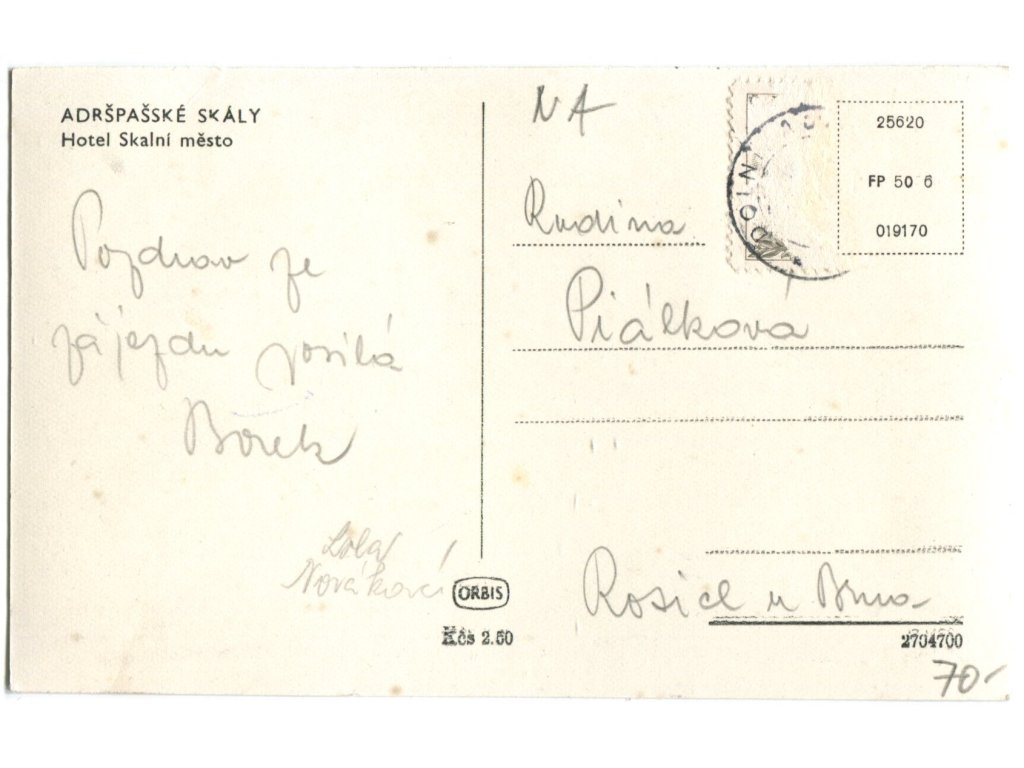 ADRŠPAŠSKÉ SKÁLY
Hotel Skalní město
Pozdrav ze
zájezdu posílá
Bořek
Nováková
ORBIS
Kčs 2.50
NA
25620
FP 50 6
019170
Rudina
Piálková
Rosice u Brna
2704700
70-